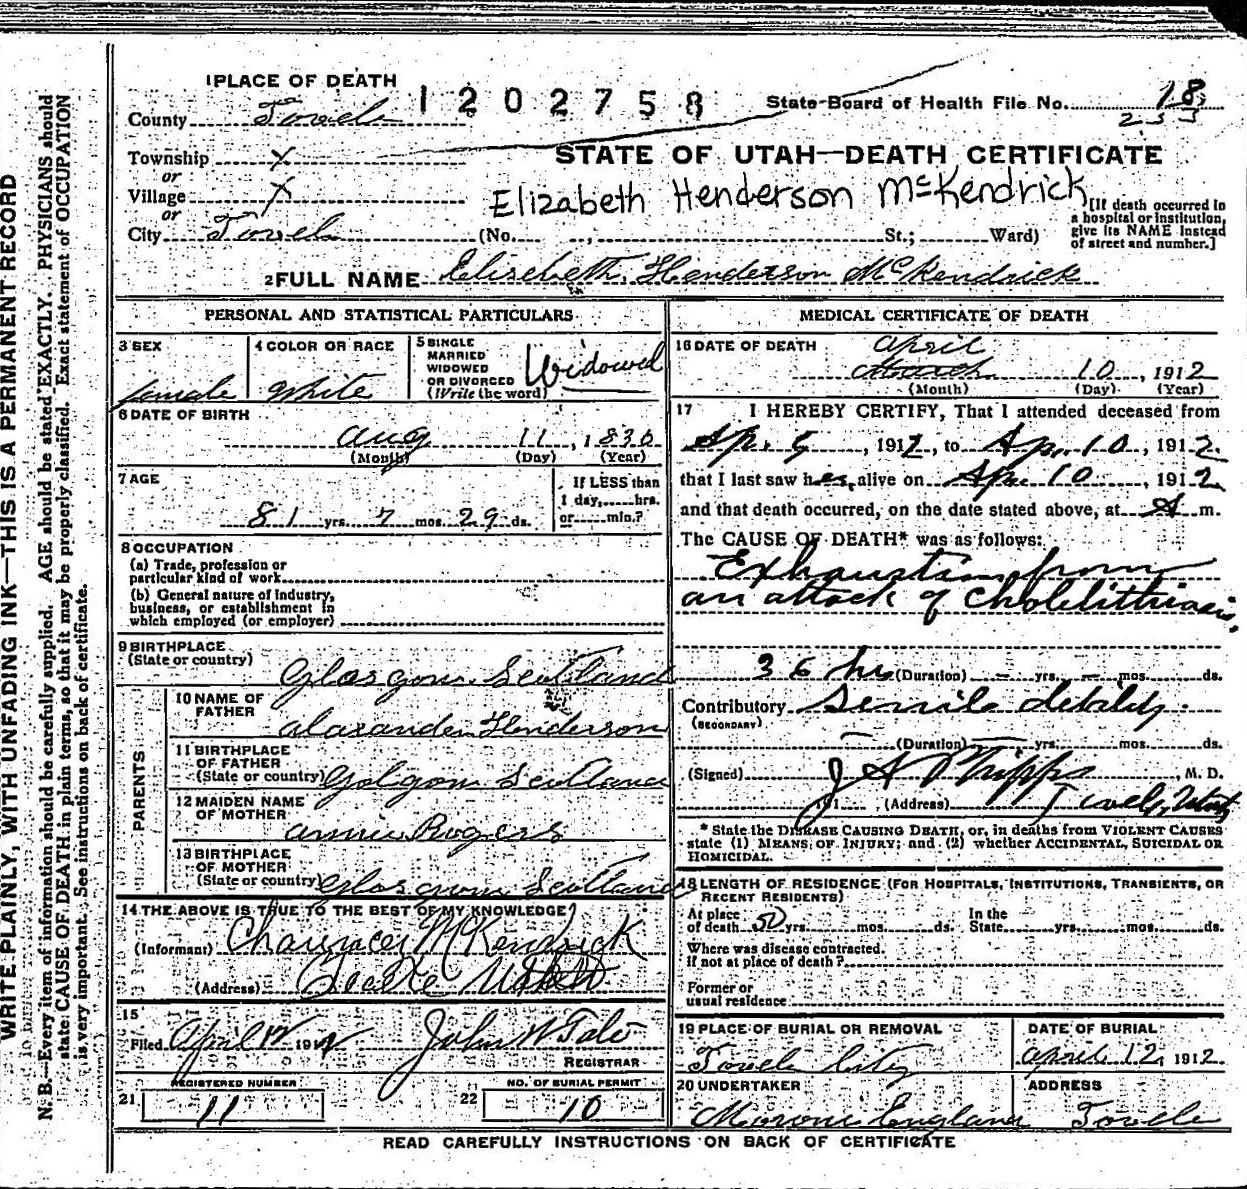 1 PLACE OF DEATH
1202758
State Board of Health File No. 18
County Tooele
Township X
or
Village X
or
City Tooele
STATE OF UTAH—DEATH CERTIFICATE
Elizabeth Henderson McKendrick
(No. , St.; Ward)
[If death occurred in
a hospital or institution,
give its NAME instead
of street and number.]
2 FULL NAME Elizebeth Henderson McKendrick
PERSONAL AND STATISTICAL PARTICULARS
3 SEX
female
4 COLOR OR RACE
White
5 SINGLE
MARRIED
WIDOWED
OR DIVORCED
(Write the word)
Widowed
6 DATE OF BIRTH
Aug 11, 1830
(Month) (Day) (Year)
7 AGE
81 yrs. 7 mos. 29 ds.
If LESS than
1 day, hrs.
or min.?
8 OCCUPATION
(a) Trade, profession or
particular kind of work
(b) General nature of industry,
business, or establishment in
which employed (or employer)
9 BIRTHPLACE
(State or country) Glasgow Scotland
PARENTS
10 NAME OF
FATHER
Alaxander Henderson
11 BIRTHPLACE
OF FATHER
(State or country) Scotland
12 MAIDEN NAME
OF MOTHER
Annie Rogers
13 BIRTHPLACE
OF MOTHER
(State or country) Glasgow Scotland
14 THE ABOVE IS TRUE TO THE BEST OF MY KNOWLEDGE
(Informant) Chauncey McKendrick
(Address)
15
Filed April 12 1912 John W Tate
REGISTRAR
REGISTERED NUMBER
21 11
NO. OF BURIAL PERMIT
22 10
MEDICAL CERTIFICATE OF DEATH
16 DATE OF DEATH
April
March 10, 1912
(Month) (Day) (Year)
17 I HEREBY CERTIFY, That I attended deceased from
Ap. 5, 1912, to Ap. 10, 1912.
that I last saw her alive on Ap. 10, 1912,
and that death occurred, on the date stated above, at A m.
The CAUSE OF DEATH* was as follows:
Exhaustion from
an attack of Cholelithiasis,
36 hrs (Duration) — yrs. — mos. ds.
Contributory Senile debility.
(SECONDARY)
(Duration) yrs. mos. ds.
(Signed) J A Phipps, M. D.
191 (Address) Tooele, Utah
* State the DISEASE CAUSING DEATH, or, in deaths from VIOLENT CAUSES
state (1) MEANS OF INJURY; and (2) whether ACCIDENTAL, SUICIDAL OR
HOMICIDAL.
18 LENGTH OF RESIDENCE (FOR HOSPITALS, INSTITUTIONS, TRANSIENTS, OR
RECENT RESIDENTS)
At place
of death 50 yrs. mos. ds.
In the
State yrs. mos. ds.
Where was disease contracted,
If not at place of death?
Former or
usual residence
19 PLACE OF BURIAL OR REMOVAL
Tooele City
DATE OF BURIAL
April 12, 1912
20 UNDERTAKER
Moroni England
ADDRESS
Tooele
READ CAREFULLY INSTRUCTIONS ON BACK OF CERTIFICATE
WRITE PLAINLY, WITH UNFADING INK—THIS IS A PERMANENT RECORD
N. B.—Every item of information should be carefully supplied. AGE should be stated EXACTLY. PHYSICIANS should
state CAUSE OF DEATH in plain terms, so that it may be properly classified. Exact statement of OCCUPATION
is very important. See instructions on back of certificate.